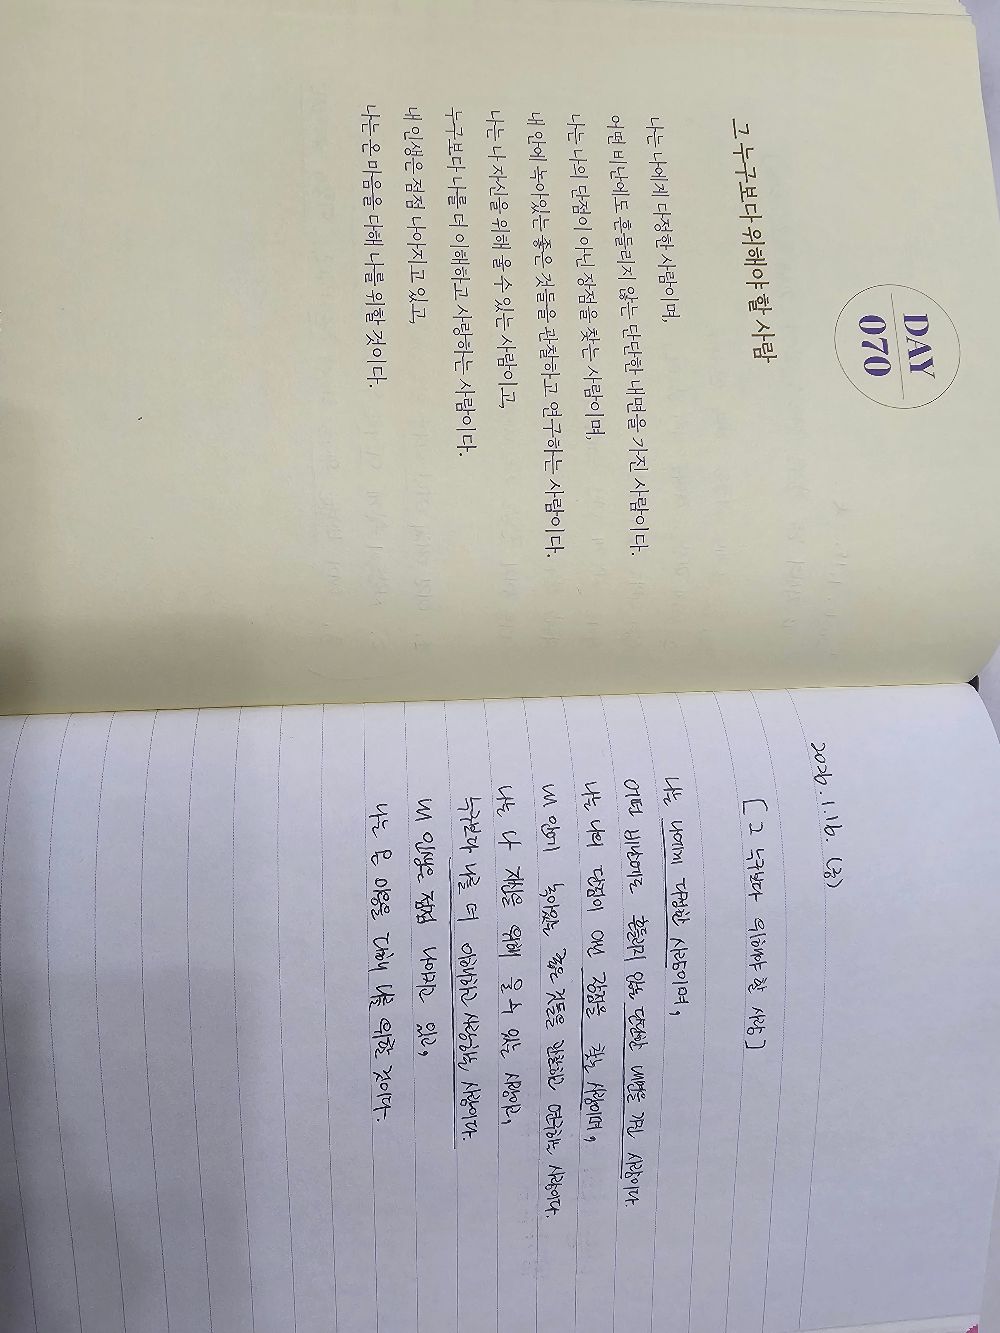 DAY
070
그 누구보다 위해야 할 사람
나는 나에게 다정한 사람이며,
어떤 비난에도 흔들리지 않는 단단한 내면을 가진 사람이다.
나는 나의 단점이 아닌 장점을 찾는 사람이며,
내 안에 녹아있는 좋은 것들을 관찰하고 연구하는 사람이다.
나는 나 자신을 위해 울 수 있는 사람이고,
누구보다 나를 더 이해하고 사랑하는 사람이다.
내 인생은 점점 나아지고 있고,
나는 온 마음을 다해 나를 위할 것이다.
2026. 1. 16. (금)
[그 누구보다 위해야 할 사람]
나는 나에게 다정한 사람이며,
어떤 비난에도 흔들리지 않는 단단한 내면을 가진 사람이다.
나는 나의 단점이 아닌 장점을 찾는 사람이며,
내 안에 녹아있는 좋은 것들을 관찰하고 연구하는 사람이다.
나는 나 자신을 위해 울 수 있는 사람이고,
누구보다 나를 더 이해하고 사랑하는 사람이다.
내 인생은 점점 나아지고 있고,
나는 온 마음을 다해 나를 위할 것이다.